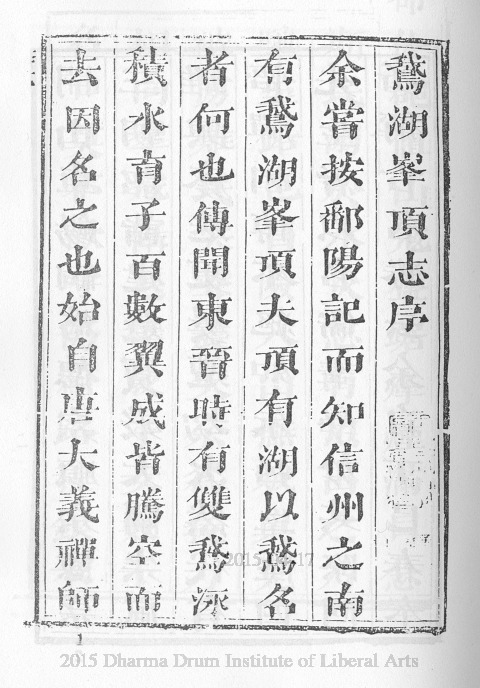 鵞湖峯頂志序
余嘗按鄱陽記而知信州之南
有鵞湖峯頂夫頂有湖以鵞名
者何也傳聞東晉時有雙鵞泳
積水育子百數翼成皆騰空而
去因名之也始自唐大義禪師
1
2015 Dharma Drum Institute of Liberal Arts